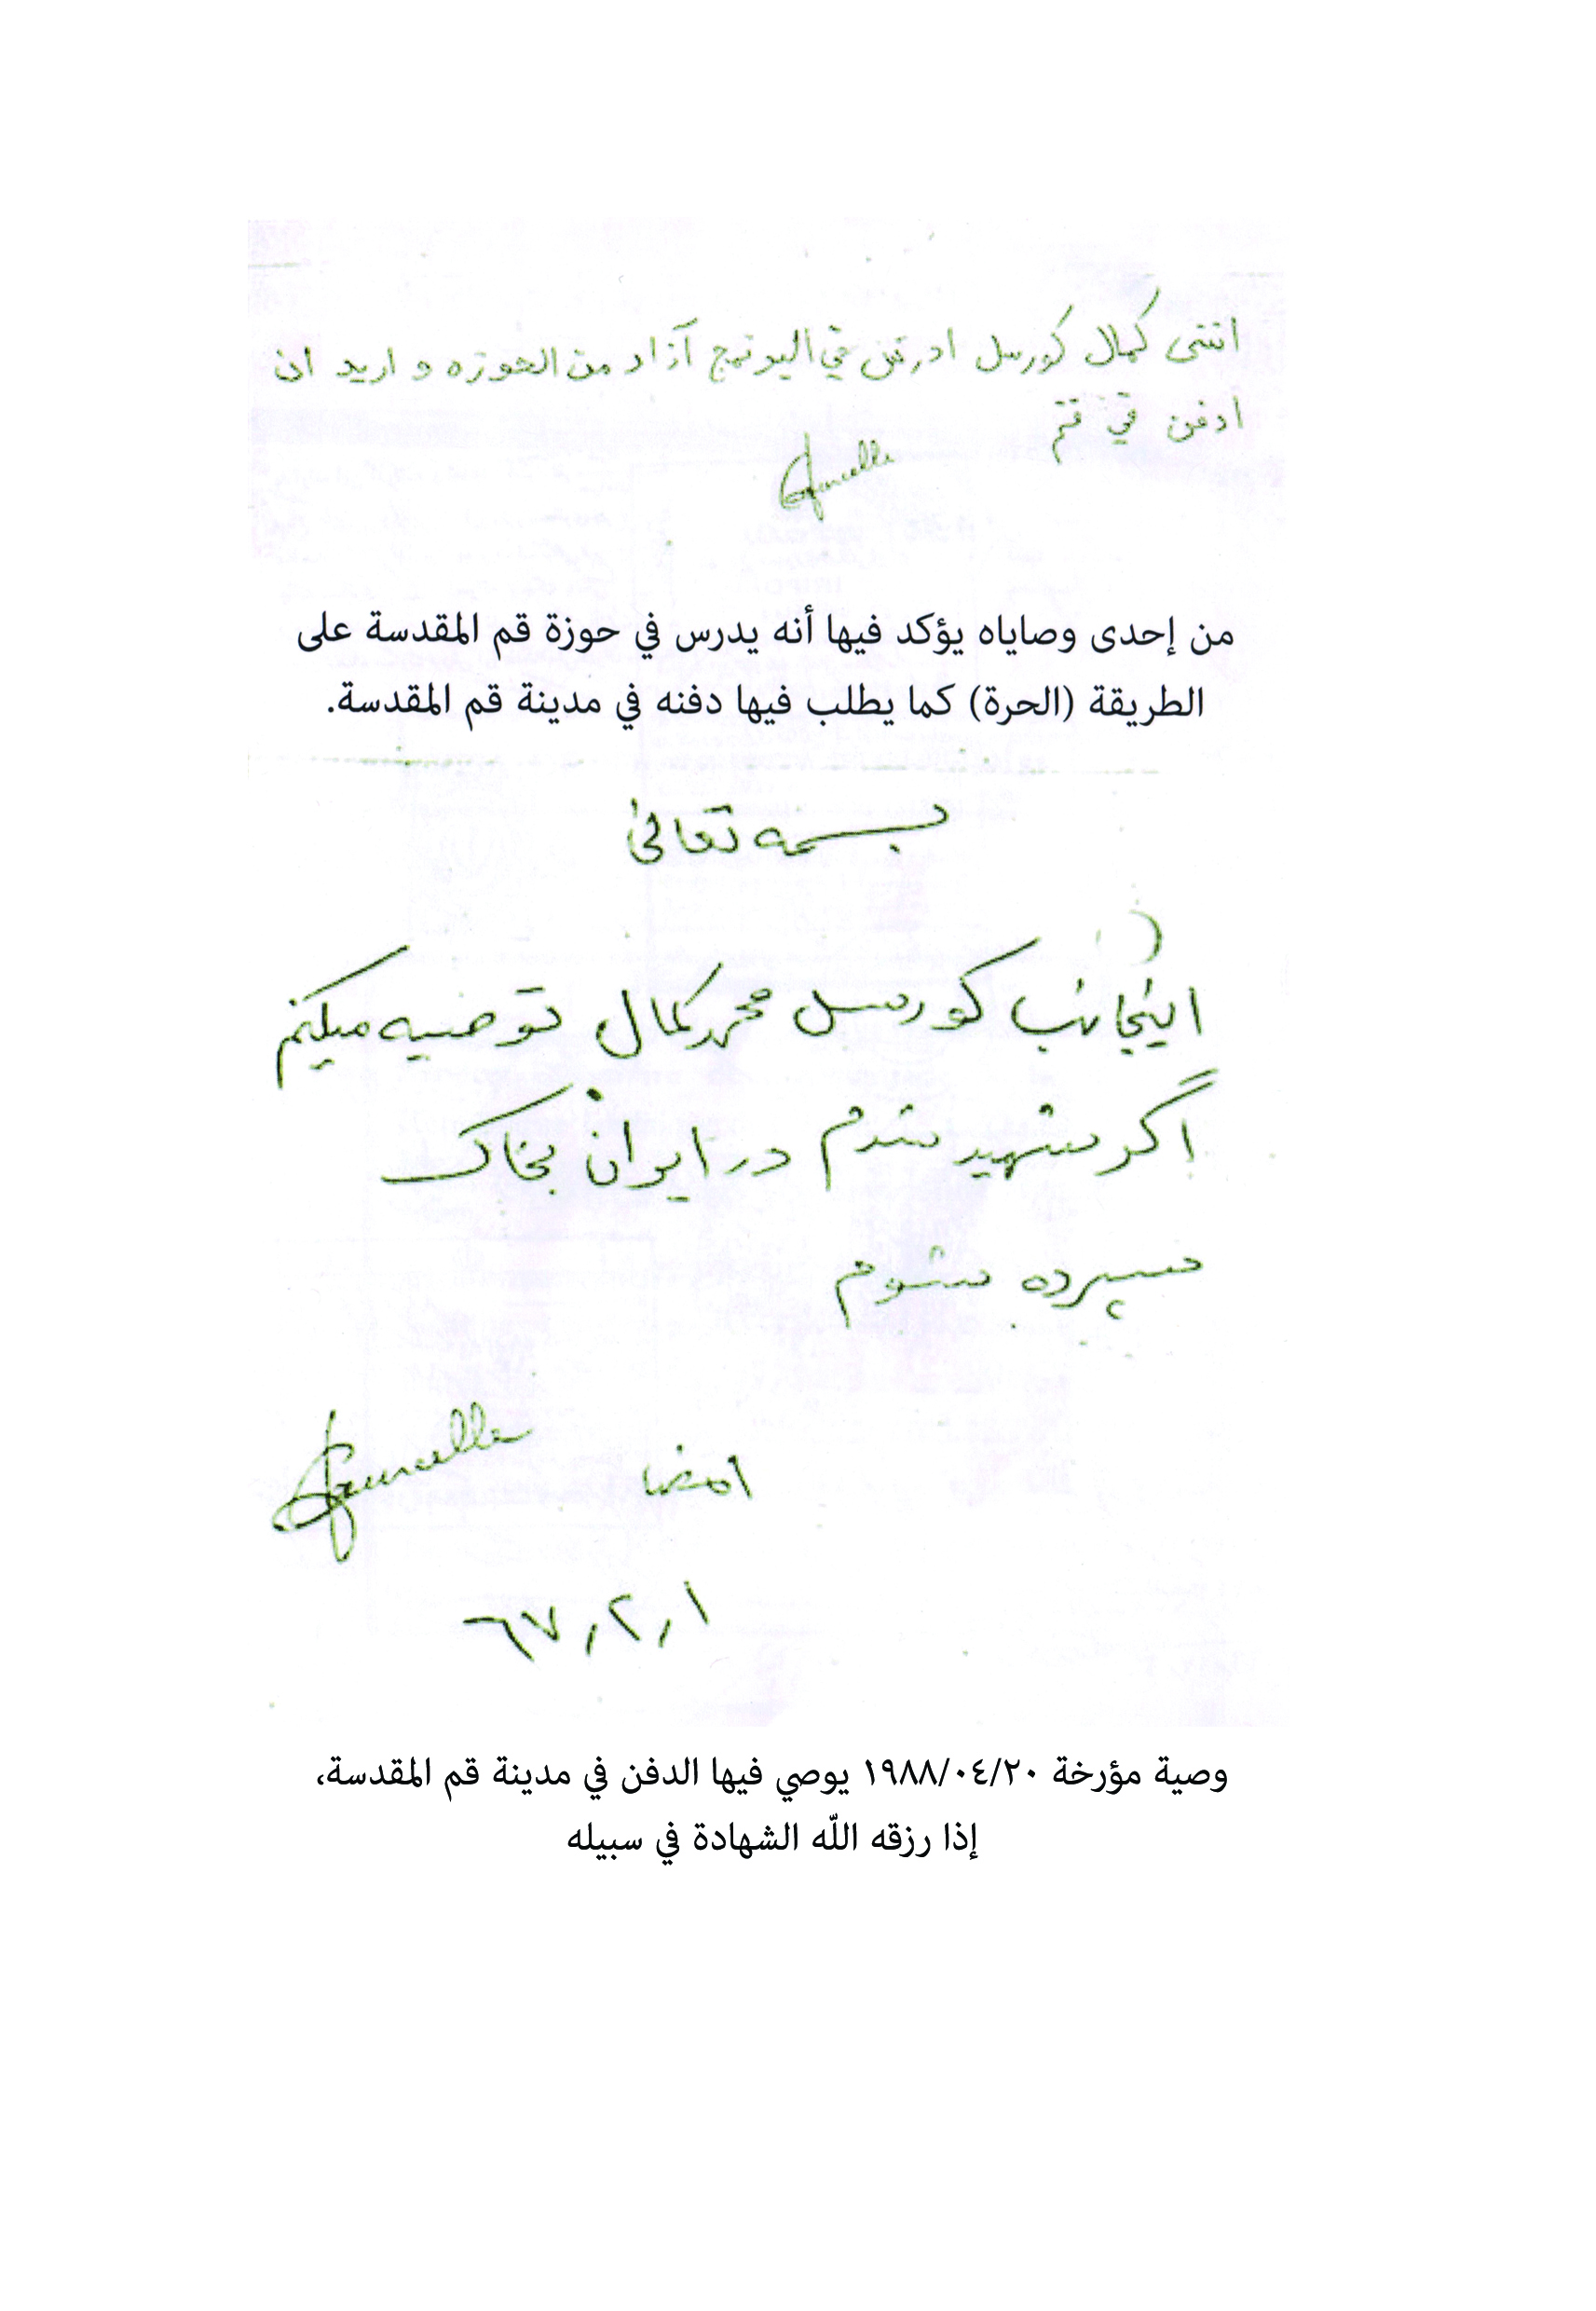 اننى كمال كورسل ادرس في البرنامج آزاد من الحوزه و اريد ان
ادفن في قم
من إحدى وصاياه يؤكد فيها أنه يدرس في حوزة قم المقدسة على
الطريقة (الحرة) كما يطلب فيها دفنه في مدينة قم المقدسة.
بسمه تعالى
اینجانب کورسل محمد کمال توصیه میکنم
اگر شهید شدم در ایران بخاک
سپرده شوم
امضا
٦٧,٢,١
وصية مؤرخة ١٩٨٨/٠٤/٢٠ يوصي فيها الدفن في مدينة قم المقدسة،
إذا رزقه اللّه الشهادة في سبيله